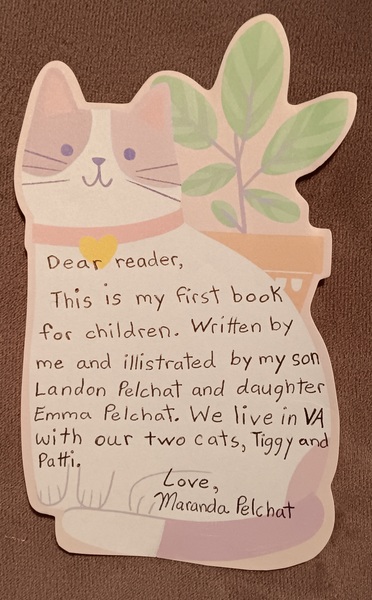 Dear reader,
This is my first book
for children. Written by
me and illistrated by my son
Landon Pelchat and daughter
Emma Pelchat. We live in VA
with our two cats, Tiggy and
Patti.
Love,
Maranda Pelchat